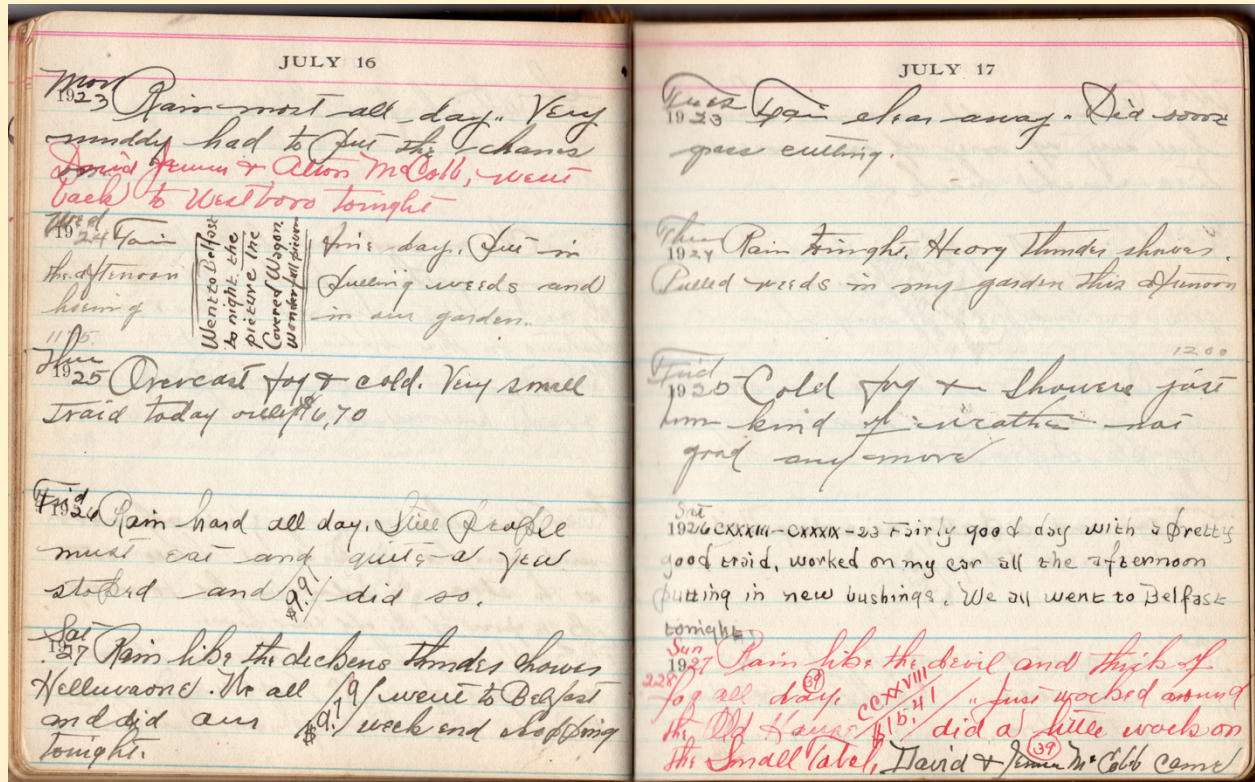 JULY 16
Mon
1923 Rain most all day. Very
muddy had to put the chanes
David Jennie & Alton McCobb, went
back to Westboro tonight
Wed
1924 Fair fine day. Put in
the afternoon pulling weeds and
hoeing in our garden.
Went to Belfast
to night the
picture the
Covered Wagon.
Wonderfull given
1175
Thu
1925 Overcast fog & cold. Very small
traid today only $6,70
Frid
1926 Rain hard all day. Still people
must eat and quite a few
stoped and $9.91 did so.
Sat
1927 Rain like the deckens thunder shower
Helluvaone. We all /9/ went to Belfast
and did our $9.79 week end shopping
tonight.
JULY 17
Tues
1923 Fair clear away. Did some
grass cutting.
Thu
1924 Rain toinght. Heavy thunder shower.
Pulled weeds in my garden this afternoon
1200
Frid
1925 Cold fog & showers just
kind of weather not
good any more
Sat
1926 CXXXIII-CXXXIX-23 Fairly good day with a pretty
good traid, worked on my car all the afternoon
putting in new bushings. We all went to Belfast
tonight.
Sun
1927 Rain like the devil and thick of
228 fog all day. 39 CCXXVIII Just worked around
the Old House $15.41 did a little work on
the Small label, David & Jennie McCobb came
39